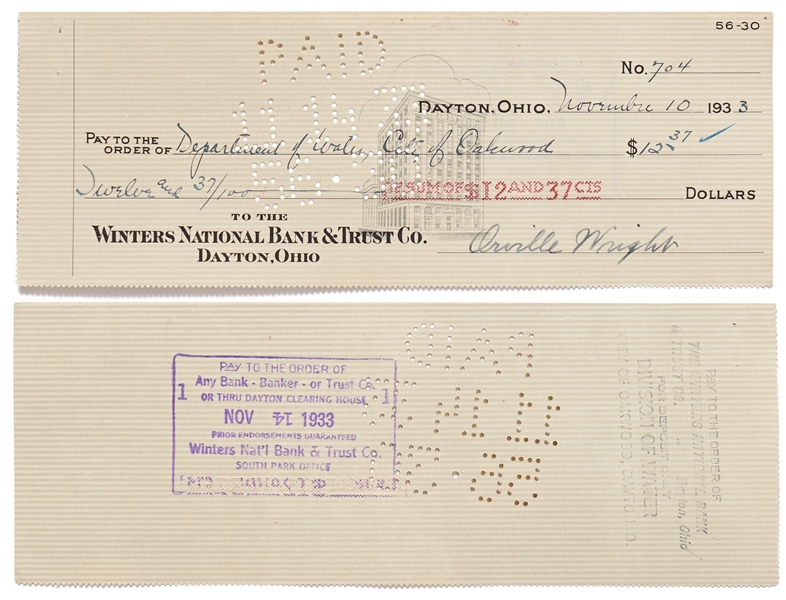 56-30
PAID
No. 704
11 14 33
DAYTON, OHIO, November 10 1933
PAY TO THE ORDER OF Department of Water, City of Oakwood $12 37
Twelve and 37/100 SUM OF $12 AND 37 CTS DOLLARS
TO THE
WINTERS NATIONAL BANK & TRUST CO.
DAYTON, OHIO
Orville Wright
PAY TO THE ORDER OF
Any Bank - Banker - or Trust Co.
1 OR THRU DAYTON CLEARING HOUSE 1
NOV 14 1933
PRIOR ENDORSEMENTS GUARANTEED
Winters Nat'l Bank & Trust Co.
SOUTH PARK OFFICE
PAID
PAY TO THE ORDER OF
THE WINTERS NATIONAL BANK
& TRUST CO. Dayton, Ohio
FOR DEPOSIT ONLY
DIVISION OF WATER
CITY OF OAKWOOD, DAYTON, O.